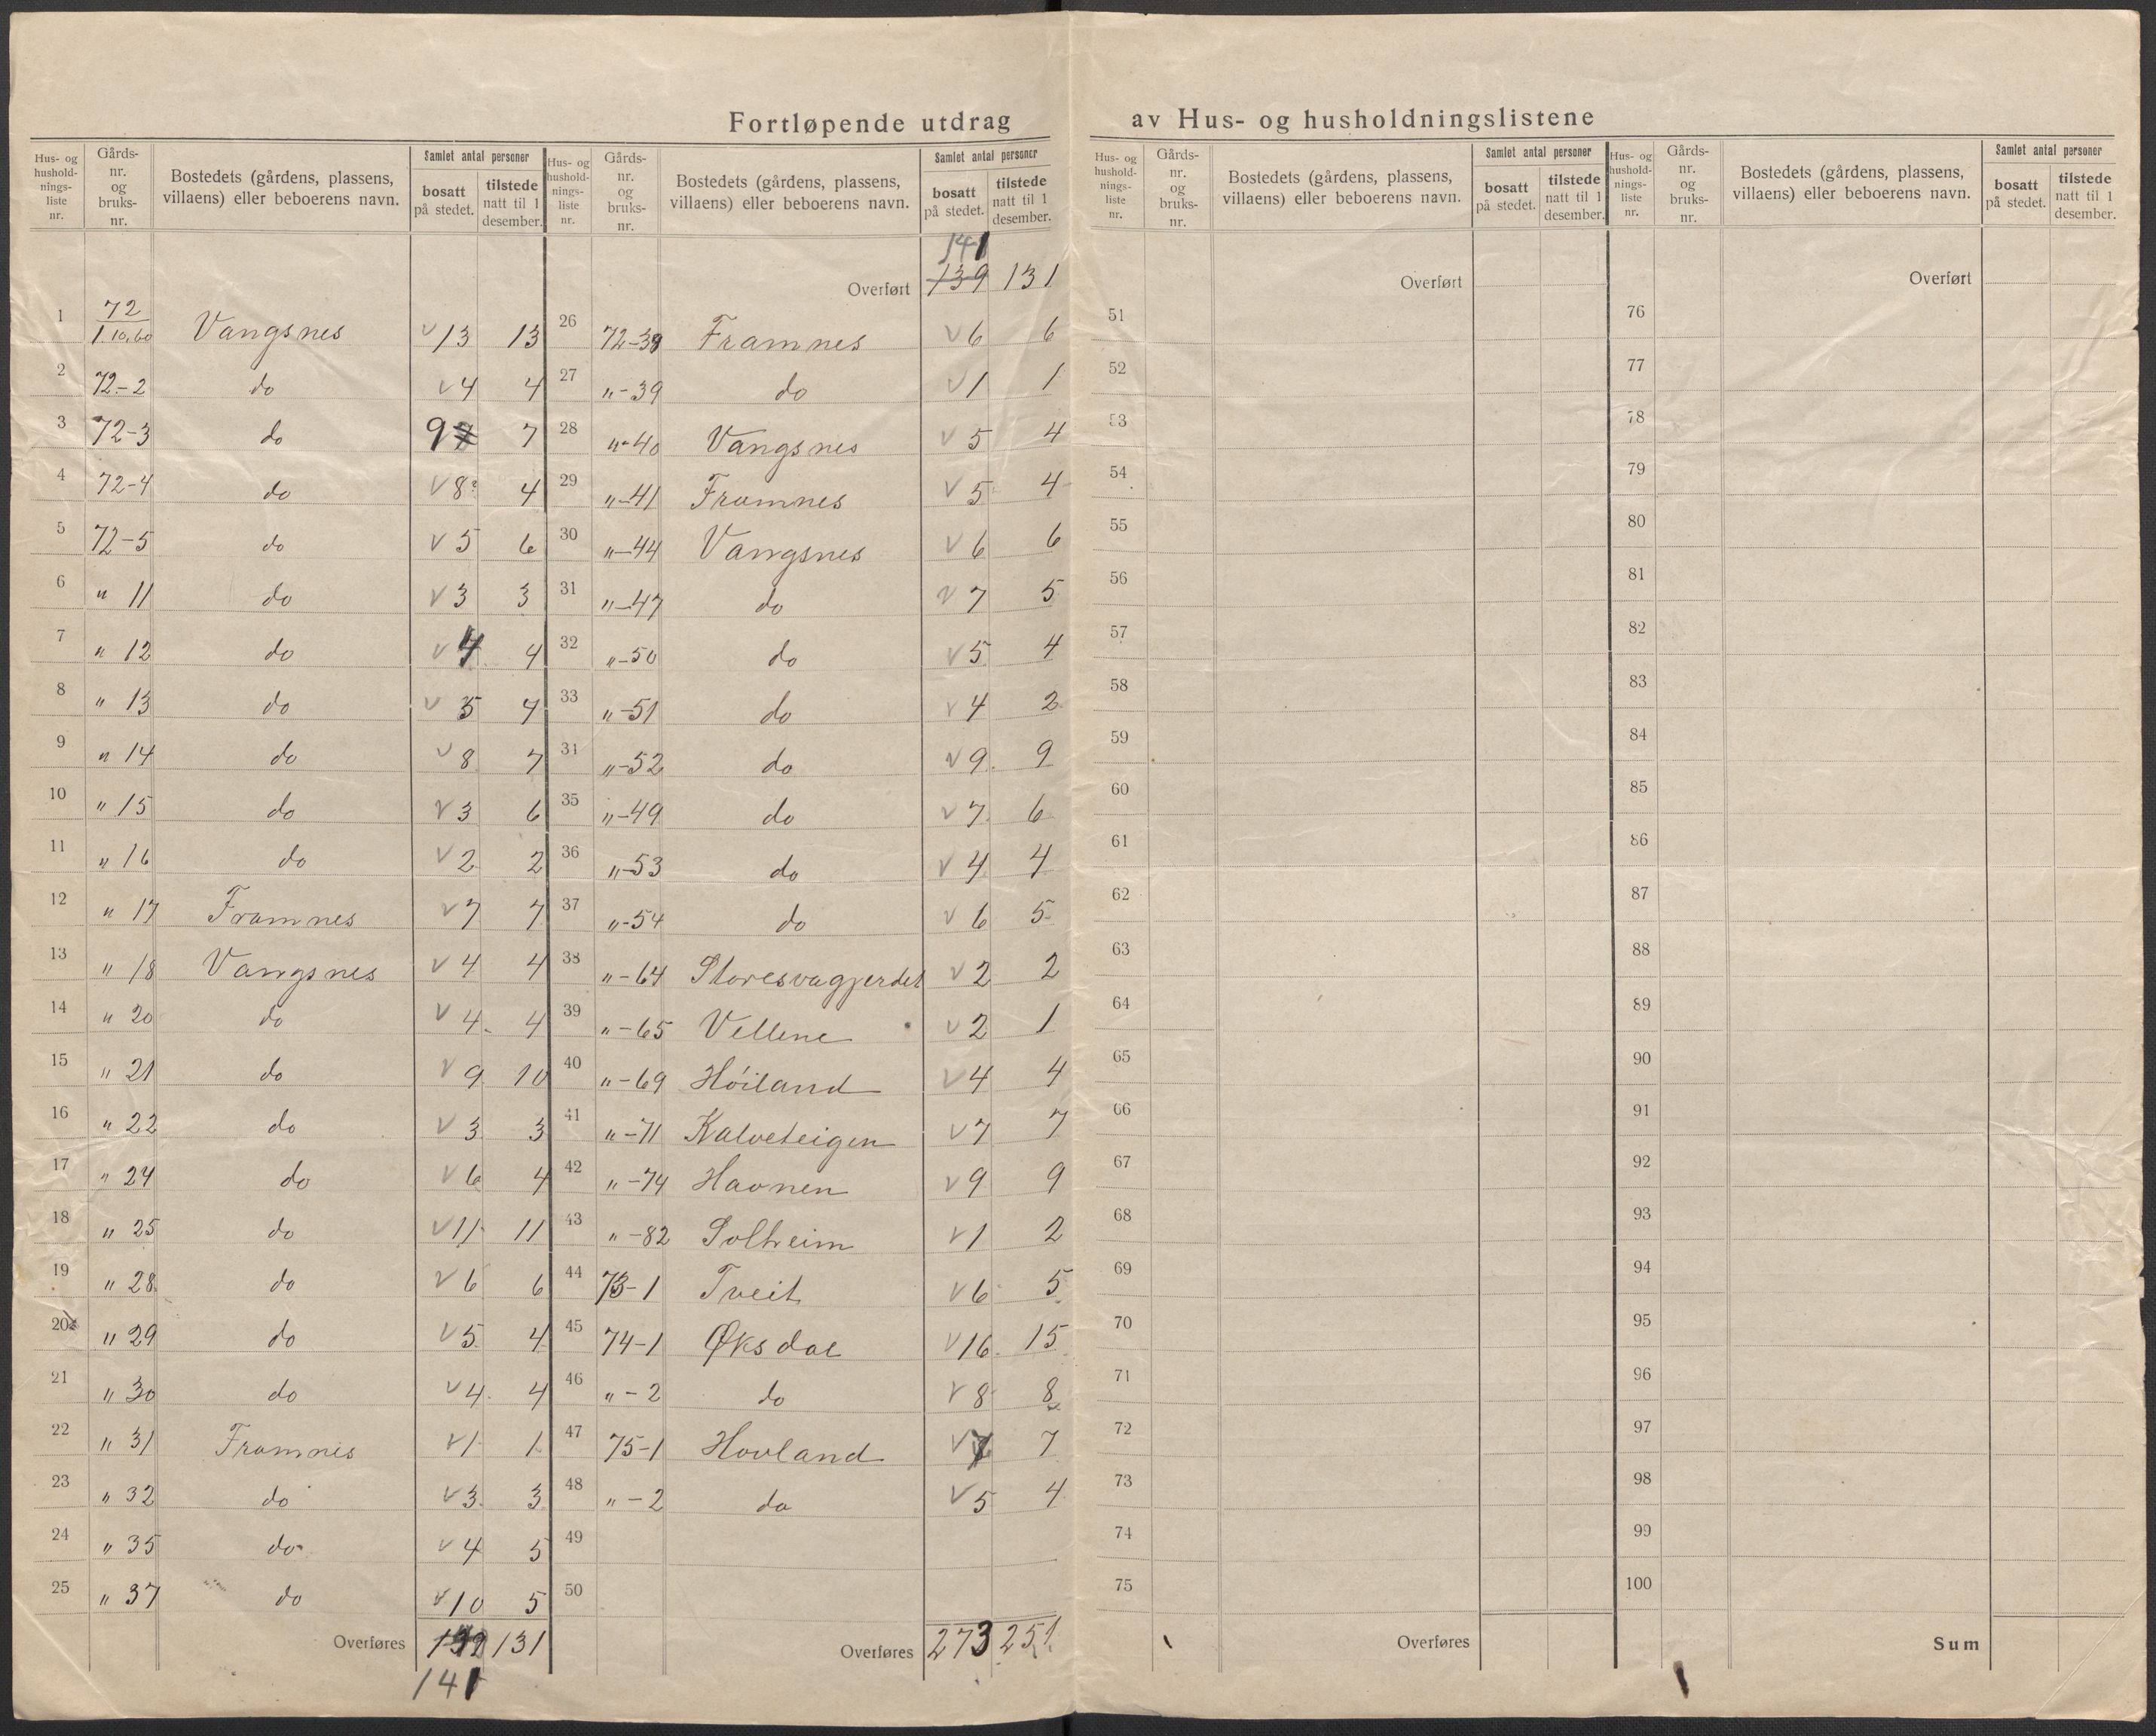 Fortløpende utdrag av Hus- og husholdningslistene
Hus- og hushold-nings-liste nr. Gårds-nr. og bruks-nr. Bostedets (gårdens, plassens, villaens) eller beboerens navn. Samlet antal personer bosatt på stedet. tilstede natt til 1 desember.
1 72/1.10.60 Vangsnes v 13 13
2 72-2 do v 4 4
3 72-3 do 9 7
4 72-4 do v 8 4
5 72-5 do v 5 6
6 " 11 do v 3 3
7 " 12 do v 4 4
8 " 13 do v 5 4
9 " 14 do v 8 7
10 " 15 do v 3 6
11 " 16 do v 2 2
12 " 17 Framnes v 7 7
13 " 18 Vangsnes v 4 4
14 " 20 do v 4 4
15 " 21 do v 9 10
16 " 22 do v 3 3
17 " 24 do v 6 4
18 " 25 do v 11 11
19 " 28 do v 6 6
20 " 29 do v 5 4
21 " 30 do v 4 4
22 " 31 Framnes v 1 1
23 " 32 do v 3 3
24 " 35 do v 4 5
25 " 37 do v 10 5
Overføres 139 131
141
Hus- og hushold-nings-liste nr. Gårds-nr. og bruks-nr. Bostedets (gårdens, plassens, villaens) eller beboerens navn. Samlet antal personer bosatt på stedet. tilstede natt til 1 desember.
141
Overført 139 131
26 72-38 Framnes v 6 6
27 "-39 do v 1 1
28 "-40 Vangsnes v 5 4
29 "-41 Framnes v 5 4
30 "-44 Vangsnes v 6 6
31 "-47 do v 7 5
32 "-50 do v 5 4
33 "-51 do v 4 2
34 "-52 do v 9 9
35 "-49 do v 7 6
36 "-53 do v 4 4
37 "-54 do v 6 5
38 "-64 Storesvagjerdet v 2 2
39 "-65 Vellene v 2 1
40 "-69 Höiland v 4 4
41 "-71 Kalveteigen v 7 7
42 "-74 Havnen v 9 9
43 "-82 Solheim v 1 2
44 73-1 Tveit v 6 5
45 74-1 Øksdal v 16 15
46 "-2 do v 8 8
47 75-1 Hovland v 7 7
48 "-2 do v 5 4
49
50
Overføres 273 251
Hus- og hushold-nings-liste nr. Gårds-nr. og bruks-nr. Bostedets (gårdens, plassens, villaens) eller beboerens navn. Samlet antal personer bosatt på stedet. tilstede natt til 1 desember.
Overført
51
52
53
54
55
56
57
58
59
60
61
62
63
64
65
66
67
68
69
70
71
72
73
74
75
Overføres
Hus- og hushold-nings-liste nr. Gårds-nr. og bruks-nr. Bostedets (gårdens, plassens, villaens) eller beboerens navn. Samlet antal personer bosatt på stedet. tilstede natt til 1 desember.
Overført
76
77
78
79
80
81
82
83
84
85
86
87
88
89
90
91
92
93
94
95
96
97
98
99
100
Sum